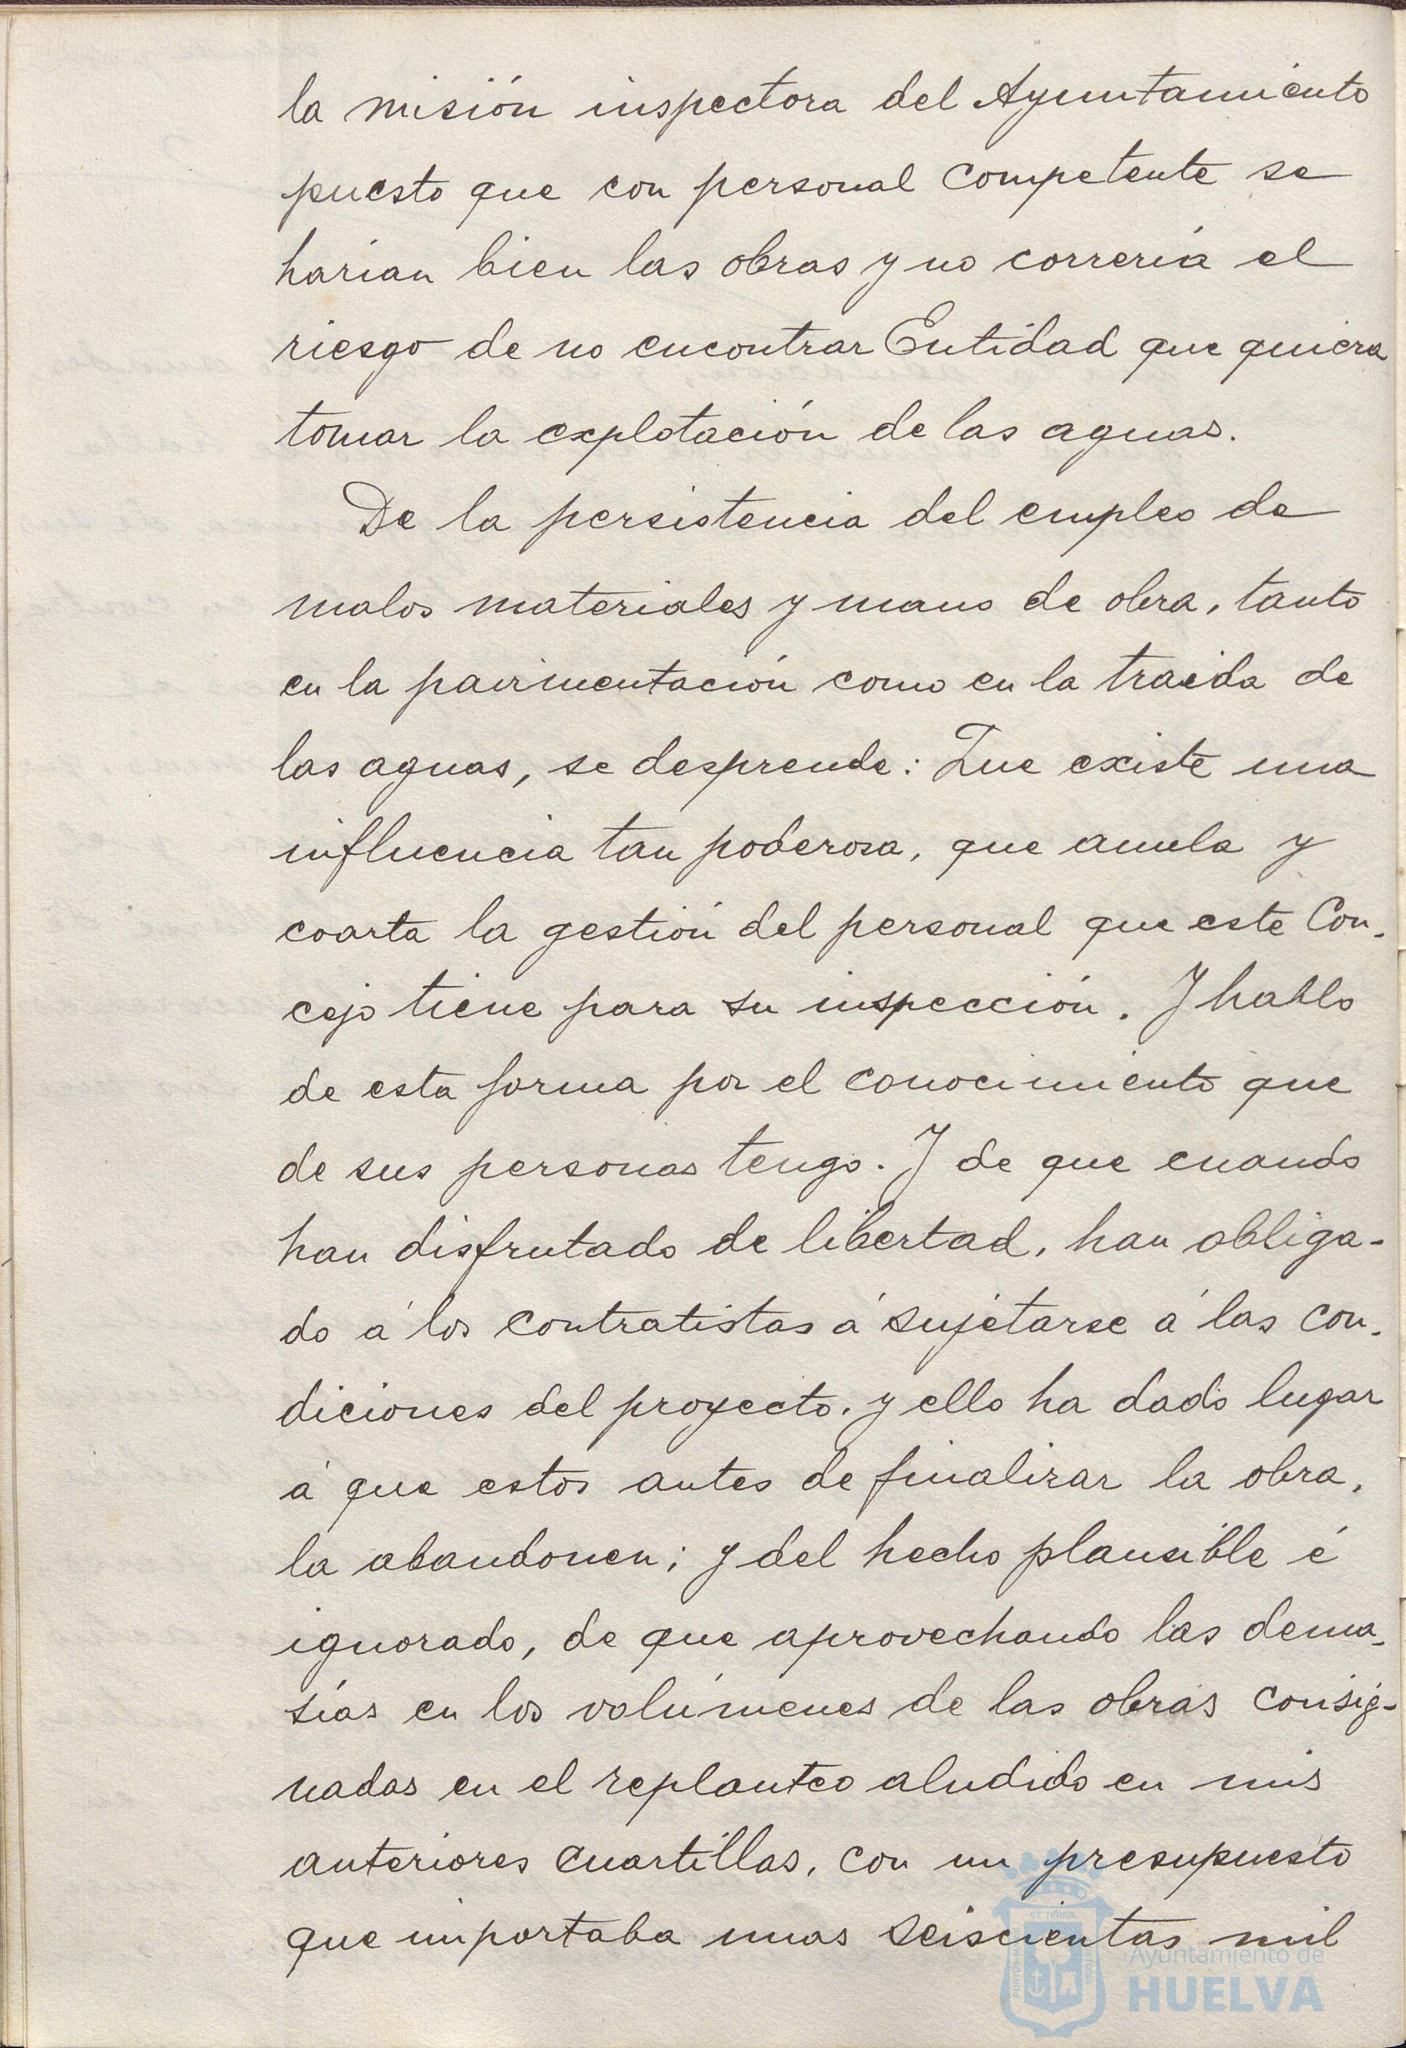 la misión inspectora del Ayuntamiento
puesto que con personal competente se
harían bien las obras y no correría el
riesgo de no encontrar Entidad que quiera
tomar la explotación de las aguas.
De la persistencia del empleo de
malos materiales y mano de obra, tanto
en la pavimentación como en la traida de
las aguas, se desprende: Que existe una
influencia tan poderosa, que anula y
coarta la gestión del personal que este Con-
cejo tiene para su inspección. Y hablo
de esta forma por el conocimiento que
de sus personas tengo. Y de que cuando
han disfrutado de libertad, han obliga-
do á los contratistas á sujetarse á las con-
diciones del proyecto, y ello ha dado lugar
á que estos antes de finalizar la obra,
la abandonen; y del hecho plausible é
ignorado, de que aprovechando las dema-
sías en los volúmenes de las obras consig-
nadas en el replanteo aludido en mis
anteriores cuartillas, con un presupuesto
que importaba unas seiscientas mil
Ayuntamiento de
HUELVA